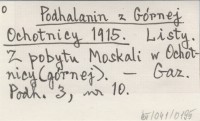 0
Podhalanin z Górnej
Ochotnicy 1915. Listy.
Z pobytu Moskali w Ochot-
nicy (górnej). — Gaz.
Podh. 3, nr 10.